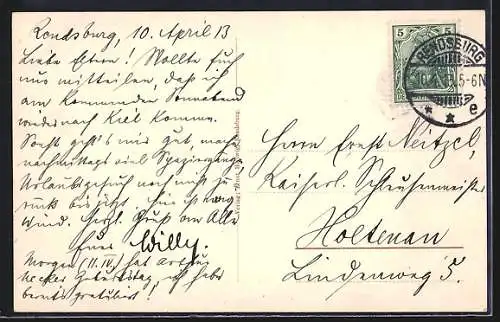 Rendsburg, 10. April 13
Liebe Eltern! Wollte Euch
nur mitteilen, daß ich
am kommenden Sonnabend
wieder nach Kiel komme.
Sonst geht's mir gut, mache
nachmittags viel Spaziergänge.
Urlaubsgesuch noch nicht zu-
rück bis jetzt,
wird. Herzl. Gruß an Alle
Euer Willy.
Morgen (11. IV.) hat
Geburtstag, ich habe
bereits gratuliert!
5
RENDSBURG
5-6N
* * e
Herrn Ernst Neitzel,
Kaiserl. Schleusenmeister
Holtenau
Lindenweg 5.